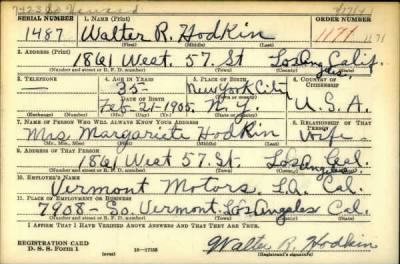 SERIAL NUMBER 1. NAME (Print) ORDER NUMBER
1487 Walter R. Hodkin 1171 1171
(First) (Middle) (Last)
2. ADDRESS (Print)
1861 West. 57. St Los Angeles Calif.
(Number and street or R. F. D. number) (Town) (County) (State)
3. TELEPHONE 4. AGE IN YEARS 5. PLACE OF BIRTH 6. COUNTRY OF CITIZENSHIP
— 35- New York City
DATE OF BIRTH (Town or county)
Feb-21-1905. N.Y. U.S.A.
(Exchange) (Number) (Mo.) (Day) (Yr.) (State or country)
7. NAME OF PERSON WHO WILL ALWAYS KNOW YOUR ADDRESS 8. RELATIONSHIP OF THAT PERSON
Mrs. Margariete Hodkin Wife
(Mr., Mrs., Miss) (First) (Middle) (Last)
9. ADDRESS OF THAT PERSON
1861 West 57. St. Los Angeles Cal.
(Number and street or R. F. D. number) (Town) (County) (State)
10. EMPLOYER'S NAME
Vermont Motors. L.A. Cal.
11. PLACE OF EMPLOYMENT OR BUSINESS
7908-So. Vermont, Los Angeles Cal.
(Number and street or R. F. D. number) (Town) (County) (State)
I AFFIRM THAT I HAVE VERIFIED ABOVE ANSWERS AND THAT THEY ARE TRUE.
REGISTRATION CARD
D. S. S. Form 1 (over) Walter R. Hodkin
(Registrant's signature)